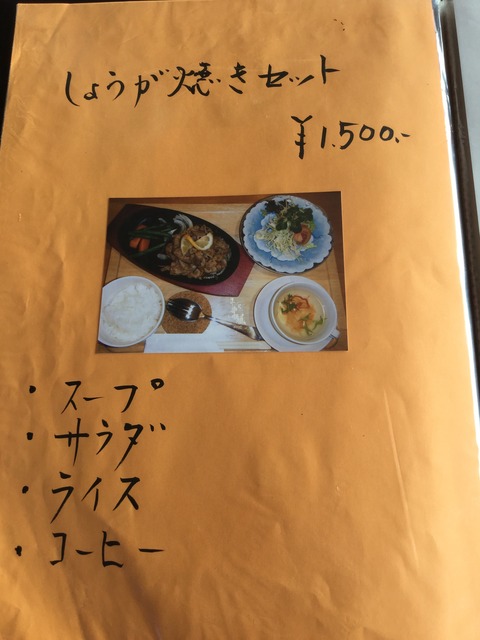 しょうが焼きセット
¥1.500.-
・スープ
・サラダ
・ライス
・コーヒー